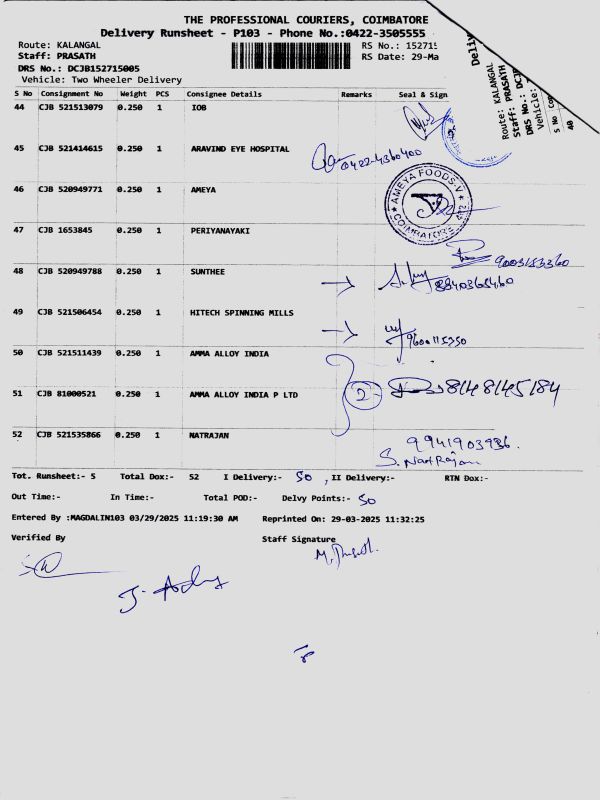 THE PROFESSIONAL COURIERS, COIMBATORE
Delivery Runsheet - P103 - Phone No.:0422-3505555
Route: KALANGAL
Staff: PRASATH
DRS No.: DCJB152715005
Vehicle: Two Wheeler Delivery
RS No.: 15271
RS Date: 29-Ma
Deliv
Route: KALANGAL
Staff: PRASATH
DRS No.: DCJ
Vehicle:
S No Con
40
S No Consignment No Weight PCS Consignee Details Remarks Seal & Sign
44 CJB 521513079 0.250 1 IOB
45 CJB 521414615 0.250 1 ARAVIND EYE HOSPITAL 0422-4360400
46 CJB 520949771 0.250 1 AMEYA
AMEYA FOODS
COIMBATORE
47 CJB 1653845 0.250 1 PERIYANAYAKI 9003153360
48 CJB 520949788 0.250 1 SUNTHEE 8840365460
49 CJB 521506454 0.250 1 HITECH SPINNING MILLS 9600115350
50 CJB 521511439 0.250 1 AMMA ALLOY INDIA
51 CJB 81000521 0.250 1 AMMA ALLOY INDIA P LTD 2 8148145184
52 CJB 521535866 0.250 1 NATRAJAN 9941903936.
S. NatRajan
Tot. Runsheet:- 5 Total Dox:- 52 I Delivery:- 50 , II Delivery:- RTN Dox:-
Out Time:- In Time:- Total POD:- Delvy Points:- 50
Entered By :MAGDALIN103 03/29/2025 11:19:30 AM Reprinted On: 29-03-2025 11:32:25
Verified By Staff Signature